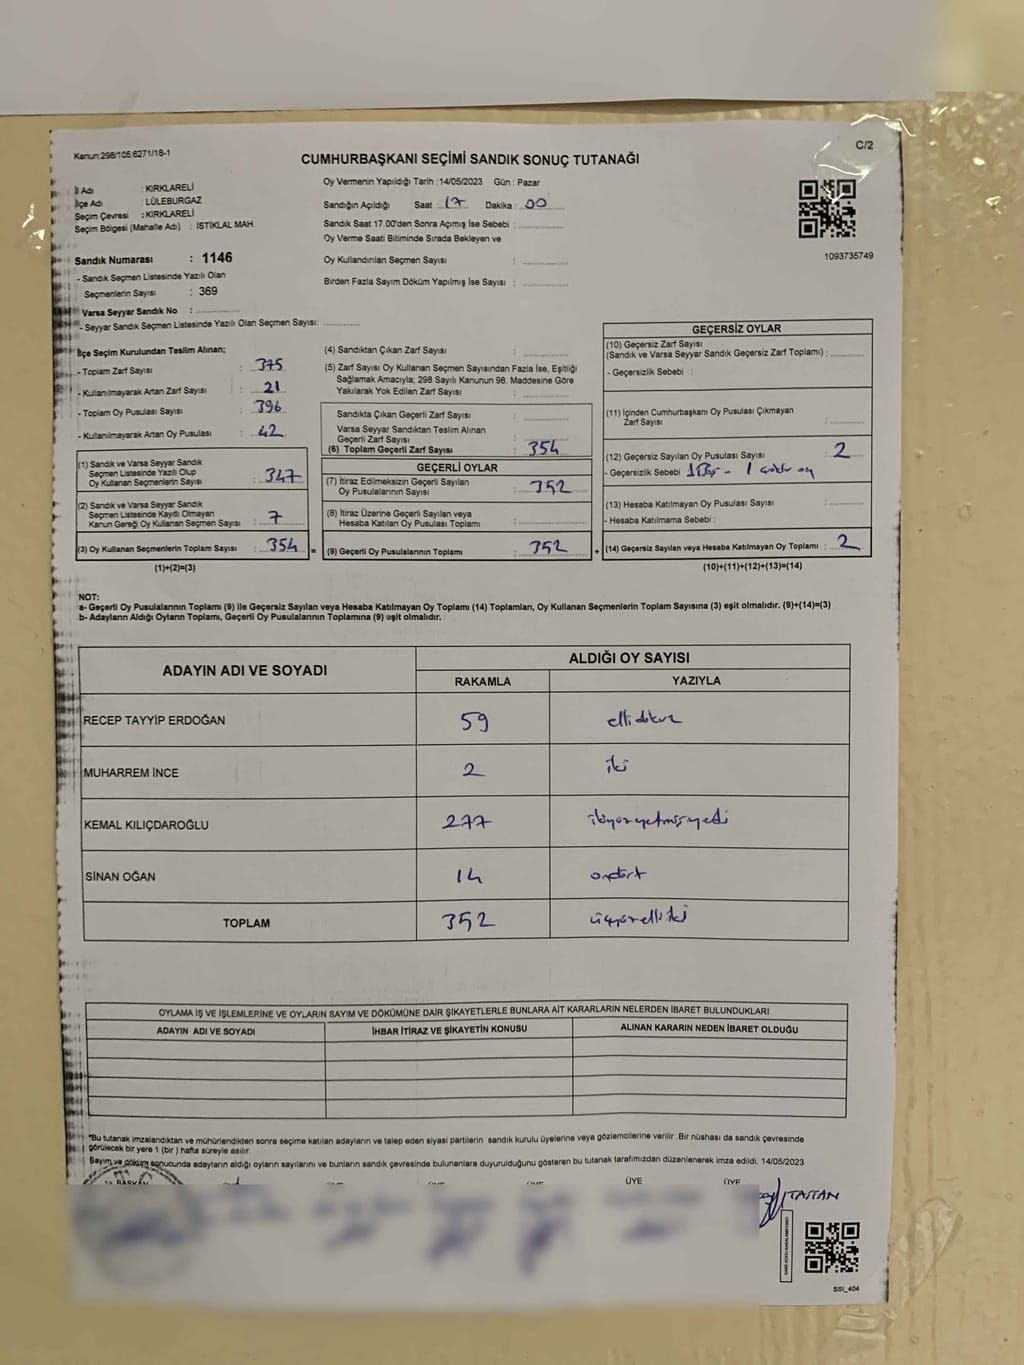 Kanun:298/105,6271/18-1
C/2
CUMHURBAŞKANI SEÇİMİ SANDIK SONUÇ TUTANAĞI
İl Adı : KIRKLARELİ
İlçe Adı : LÜLEBURGAZ
Seçim Çevresi : KIRKLARELİ
Seçim Bölgesi (Mahalle Adı) : İSTİKLAL MAH.
Sandık Numarası : 1146
- Sandık Seçmen Listesinde Yazılı Olan
Seçmenlerin Sayısı : 369
Varsa Seyyar Sandık No :
- Seyyar Sandık Seçmen Listesinde Yazılı Olan Seçmen Sayısı:
Oy Vermenin Yapıldığı Tarih :14/05/2023 Gün : Pazar
Sandığın Açıldığı Saat : 17 Dakika : 00
Sandık Saat 17.00'den Sonra Açımış İse Sebebi :
Oy Verme Saati Bitiminde Sırada Bekleyen ve
Oy Kullandırılan Seçmen Sayısı :
Birden Fazla Sayım Döküm Yapılmış İse Sayısı :
1093735749
İlçe Seçim Kurulundan Teslim Alınan;
- Toplam Zarf Sayısı : 375
- Kullanılmayarak Artan Zarf Sayısı : 21
- Toplam Oy Pusulası Sayısı : 396
- Kullanılmayarak Artan Oy Pusulası : 42
(1) Sandık ve Varsa Seyyar Sandık
Seçmen Listesinde Yazılı Olup
Oy Kullanan Seçmenlerin Sayısı : 347
(2) Sandık ve Varsa Seyyar Sandık
Seçmen Listesinde Kayıtlı Olmayan
Kanun Gereği Oy Kullanan Seçmen Sayısı : 7
(3) Oy Kullanan Seçmenlerin Toplam Sayısı : 354 =
(1)+(2)=(3)
(4) Sandıktan Çıkan Zarf Sayısı :
(5) Zarf Sayısı Oy Kullanan Seçmen Sayısından Fazla İse, Eşitliği
Sağlamak Amacıyla; 298 Sayılı Kanunun 98. Maddesine Göre
Yakılarak Yok Edilen Zarf Sayısı :
Sandıkta Çıkan Geçerli Zarf Sayısı :
Varsa Seyyar Sandıktan Teslim Alınan
Geçerli Zarf Sayısı :
(6) Toplam Geçerli Zarf Sayısı : 354
GEÇERLİ OYLAR
(7) İtiraz Edilmeksizin Geçerli Sayılan
Oy Pusulalarının Sayısı : 352
(8) İtiraz Üzerine Geçerli Sayılan veya
Hesaba Katılan Oy Pusulası Toplamı :
(9) Geçerli Oy Pusulalarının Toplamı : 352 +
GEÇERSİZ OYLAR
(10) Geçersiz Zarf Sayısı
(Sandık ve Varsa Seyyar Sandık Geçersiz Zarf Toplamı) :
- Geçersizlik Sebebi :
(11) İçinden Cumhurbaşkanı Oy Pusulası Çıkmayan
Zarf Sayısı :
(12) Geçersiz Sayılan Oy Pusulası Sayısı : 2
- Geçersizlik Sebebi
(13) Hesaba Katılmayan Oy Pusulası Sayısı :
- Hesaba Katılmama Sebebi :
(14) Geçersiz Sayılan veya Hesaba Katılmayan Oy Toplamı : 2
(10)+(11)+(12)+(13)=(14)
NOT:
a- Geçerli Oy Pusulalarının Toplamı (9) ile Geçersiz Sayılan veya Hesaba Katılmayan Oy Toplamı (14) Toplamları, Oy Kullanan Seçmenlerin Toplam Sayısına (3) eşit olmalıdır. (9)+(14)=(3)
b- Adayların Aldığı Oyların Toplamı, Geçerli Oy Pusulalarının Toplamına (9) eşit olmalıdır.
ADAYIN ADI VE SOYADI
ALDIĞI OY SAYISI
RAKAMLA YAZIYLA
RECEP TAYYİP ERDOĞAN 59 elli dokuz
MUHARREM İNCE 2 iki
KEMAL KILIÇDAROĞLU 277 ikiyüzyetmişyedi
SİNAN OĞAN 14 ondört
TOPLAM 352 üçyüzelliiki
OYLAMA İŞ VE İŞLEMLERİNE VE OYLARIN SAYIM VE DÖKÜMÜNE DAİR ŞİKAYETLERLE BUNLARA AİT KARARLARIN NELERDEN İBARET BULUNDUKLARI
ADAYIN ADI VE SOYADI İHBAR İTİRAZ VE ŞİKAYETİN KONUSU ALINAN KARARIN NEDEN İBARET OLDUĞU
*Bu tutanak imzalandıktan ve mühürlendikten sonra seçime katılan adayların ve talep eden siyasi partilerin sandık kurulu üyelerine veya gözlemcilerine verilir .Bir nüshası da sandık çevresinde
görülecek bir yere 1 (bir ) hafta süreyle asılır.
Sayım ve döküm sonucunda adayların aldığı oyların sayılarını ve bunların sandık çevresinde bulunanlara duyurulduğunu gösteren bu tutanak tarafımızdan düzenlenerek imza edildi. 14/05/2023
BAŞKAN ÜYE ÜYE
SSİ_404